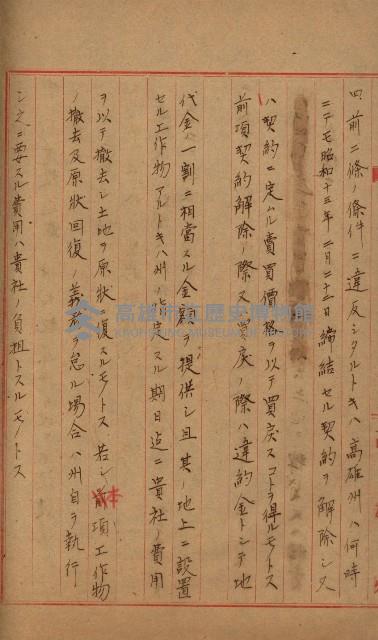 四、前二條ノ條件ニ違反シタルトキハ高雄州ハ何時
ニテモ昭和十三年二月二十二日締結セル契約ヲ解除シ又
ハ契約ニ定ムル賣買價格ヲ以テ買戻スコトヲ得ルモノトス
前項契約解除ノ際又ハ買戻ノ際ハ違約金トシテ地
代金ノ一割ニ相當スル金額ヲ提供シ且其ノ地上ニ設置
セル工作物アルトキハ州ノ指定スル期日迄ニ貴社ノ費用
ヲ以テ撤去シ土地ヲ原狀ニ復スルモノトス若シ本項工作物
ノ撤去及原狀回復ノ義務ヲ怠ル場合ハ州自ラ執行
シ之ニ要スル費用ハ貴社ノ負担トスルモノトス
高雄市立歷史博物館
KAOHSIUNG MUSEUM OF HISTORY